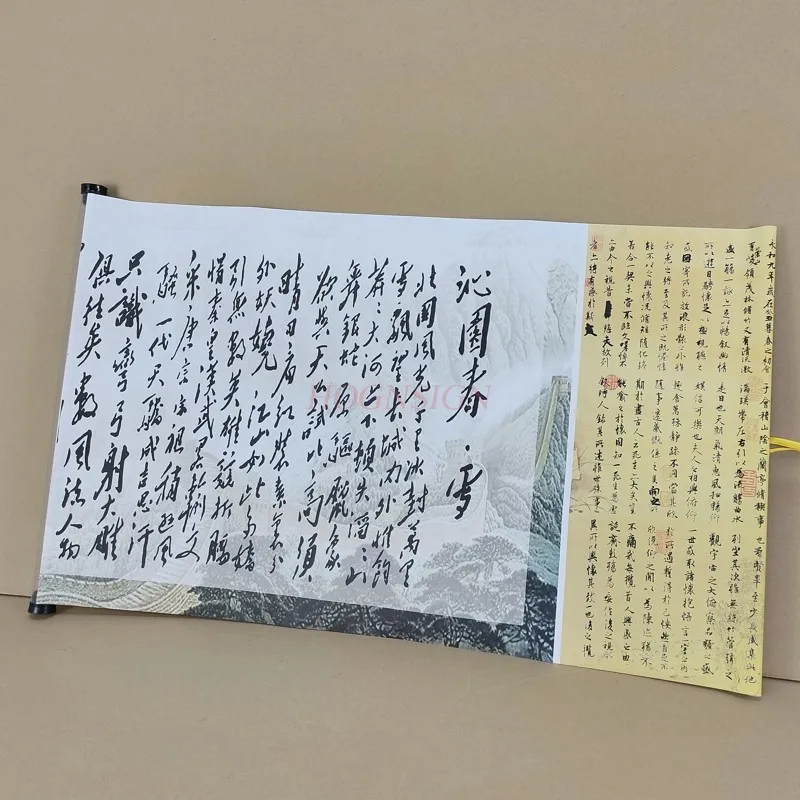 沁園春·雪
北国風光千里冰封萬里
雪飄望長城内外惟餘
莽莽大河上下頓失滔滔山
舞銀蛇原驅臘象
欲與天公試比高須
晴日看紅裝素裹分
外妖嬈江山如此多嬌
引無數英雄競折腰
惜秦皇漢武略輸文
采唐宗宋祖稍遜風
騷一代天驕成吉思汗
只識彎弓射大雕
俱往矣數風流人物
永和九年歲在癸丑暮春之初會于會稽山陰之蘭亭脩稧事也羣賢畢至少長咸集此地
有崇山峻領茂林脩竹又有清流激湍暎帶左右引以為流觴曲水列坐其次雖無絲竹管弦之
盛一觴一詠亦足以暢叙幽情是日也天朗氣清惠風和暢仰觀宇宙之大俯察品類之盛
所以遊目騁懷足以極視聽之娛信可樂也夫人之相與俯仰一世或取諸懷抱悟言一室之內
或因寄所託放浪形骸之外雖趣舍萬殊靜躁不同當其欣於所遇蹔得於己怏然自足不
知老之將至及其所之既惓情隨事遷感慨係之矣向之所欣俛仰之閒以為陳迹猶不
能不以之興懷況脩短隨化終期於盡古人云死生亦大矣豈不痛哉每攬昔人興感之由
若合一契未嘗不臨文嗟悼不能喻之於懷固知一死生為虛誕齊彭殤為妄作後之視今
亦由今之視昔悲夫故列叙時人錄其所述雖世殊事異所以興懷其致一也後之攬
者亦將有感於斯文
HOGNSIGN